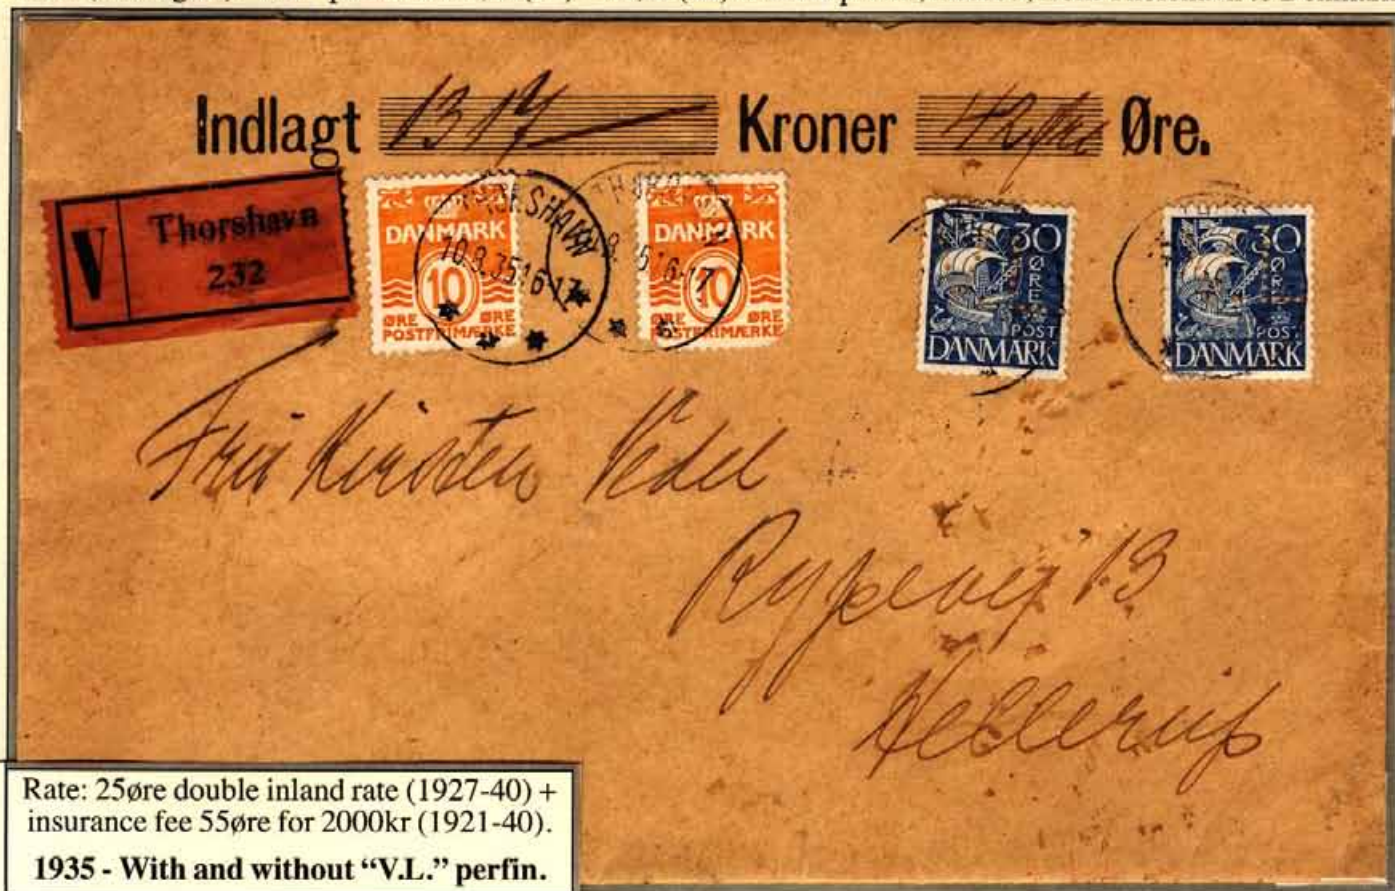 Indlagt 1317 Kroner 42 Øre.
V Thorshavn
232
THORSHAVN
10.8.35 16-17
DANMARK
10
ØRE ØRE
POSTFRIMÆRKE
DANMARK
10
ØRE ØRE
POSTFRIMÆRKE
30
ØRE
POST
DANMARK
30
ØRE
POST
DANMARK
Fru Kirsten Vedel
Rypevej 13
Hellerup
Rate: 25øre double inland rate (1927-40) +
insurance fee 55øre for 2000kr (1921-40).
1935 - With and without “V.L.” perfin.